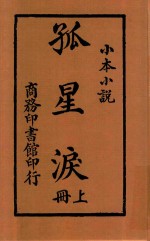 小本小說
孤星淚
上冊
商務印書館印行